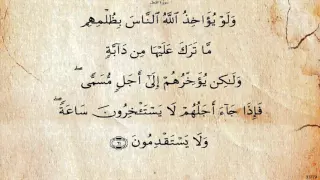 وَلَوْ يُؤَاخِذُ ٱللَّهُ ٱلنَّاسَ بِظُلْمِهِم
مَّا تَرَكَ عَلَيْهَا مِن دَآبَّةٍ
وَلَـٰكِن يُؤَخِّرُهُمْ إِلَىٰٓ أَجَلٍ مُّسَمًّى ۖ
فَإِذَا جَآءَ أَجَلُهُمْ لَا يَسْتَـْٔخِرُونَ سَاعَةً ۖ
وَلَا يَسْتَقْدِمُونَ ٦١